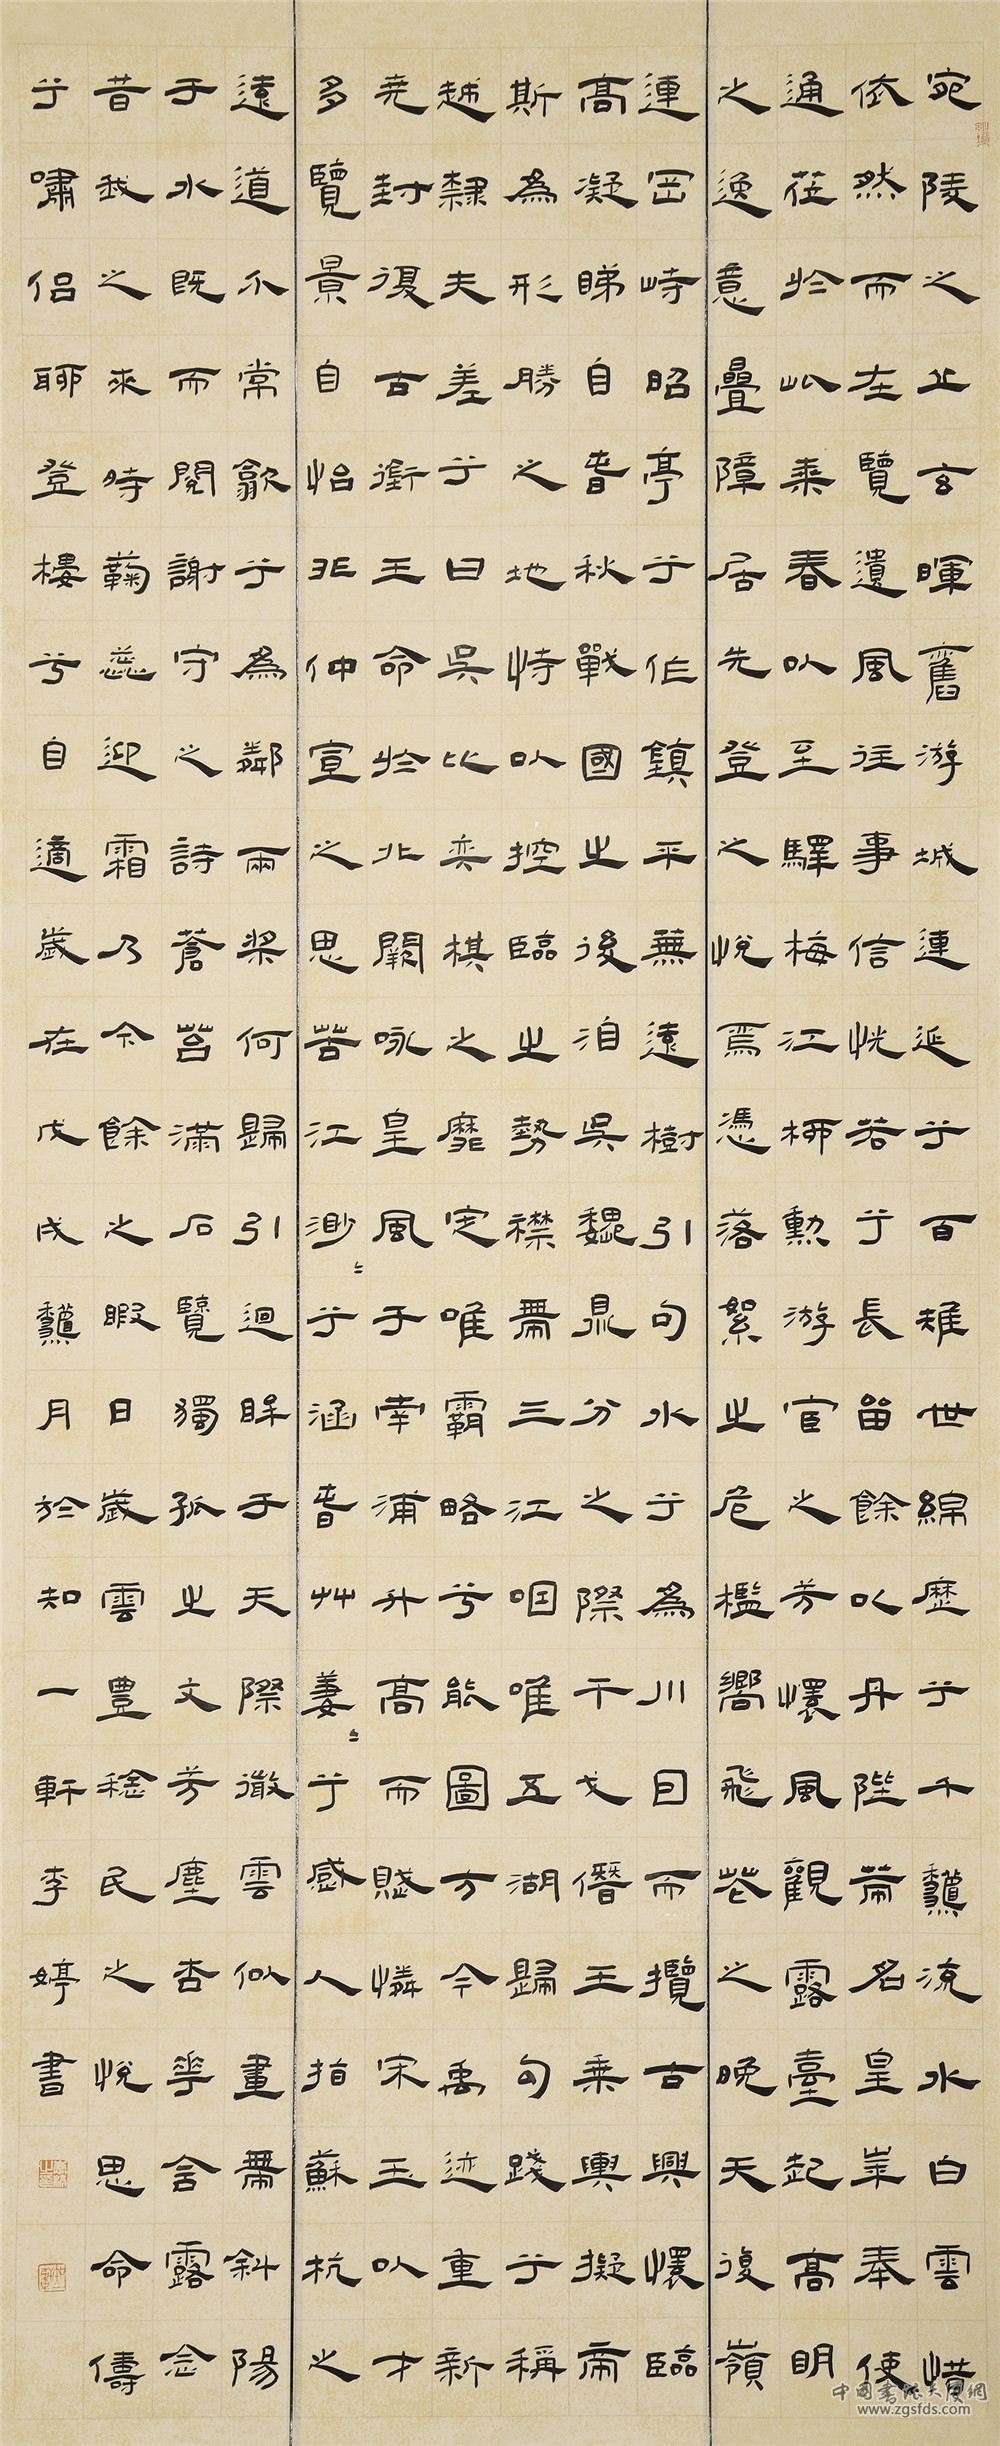 宛陵之上玄暉舊游城連延乎百雉世綿歷乎千龝流水白雲惜
依然而在覽遺風往事信恍若乎長留餘以丹陛帝名皇華奉使
通莅於此乘春以至驛梅江柳勳游宦之芳懷風觀露臺起高明
之逸意疊障居先登之悅焉憑落絮之危檻嚮飛花之晚天復嶺
連岡峙昭亭乎作鎮平蕪遠樹引句水乎為川目而攬古興懷臨
高凝睇自春秋戰國之後洎吳魏鼎分之際干戈僭王乘輿擬帝
斯為形勝之地恃以控臨之勢襟帶三江咽唯五湖歸句踐乎稱
越隸夫差乎曰吳比奕棋之靡定唯霸略兮能圖方今禹迹重新
堯封復古銜王命於北闕詠皇風于南浦升高而賦憐宋玉以才
多覽景自怡非仲宣之思苦江渺〻乎涵春艸萋〻乎感人指蘇杭之
遠道不常歙乎為鄰兩槳何歸引迴眸于天際徹雲似畫帶斜陽
于水既而閱謝守之詩蒼苔滿石覽獨孤之文芳塵杏華含露念
昔我之來時鞠蕊迎霜乃今餘之暇日歲雲豐稔民之悅思命儔
乎嘯侶聊登樓兮自適歲在戊戌龝月於知一軒李婷書
中國書法大廈網
www.zgsfds.com